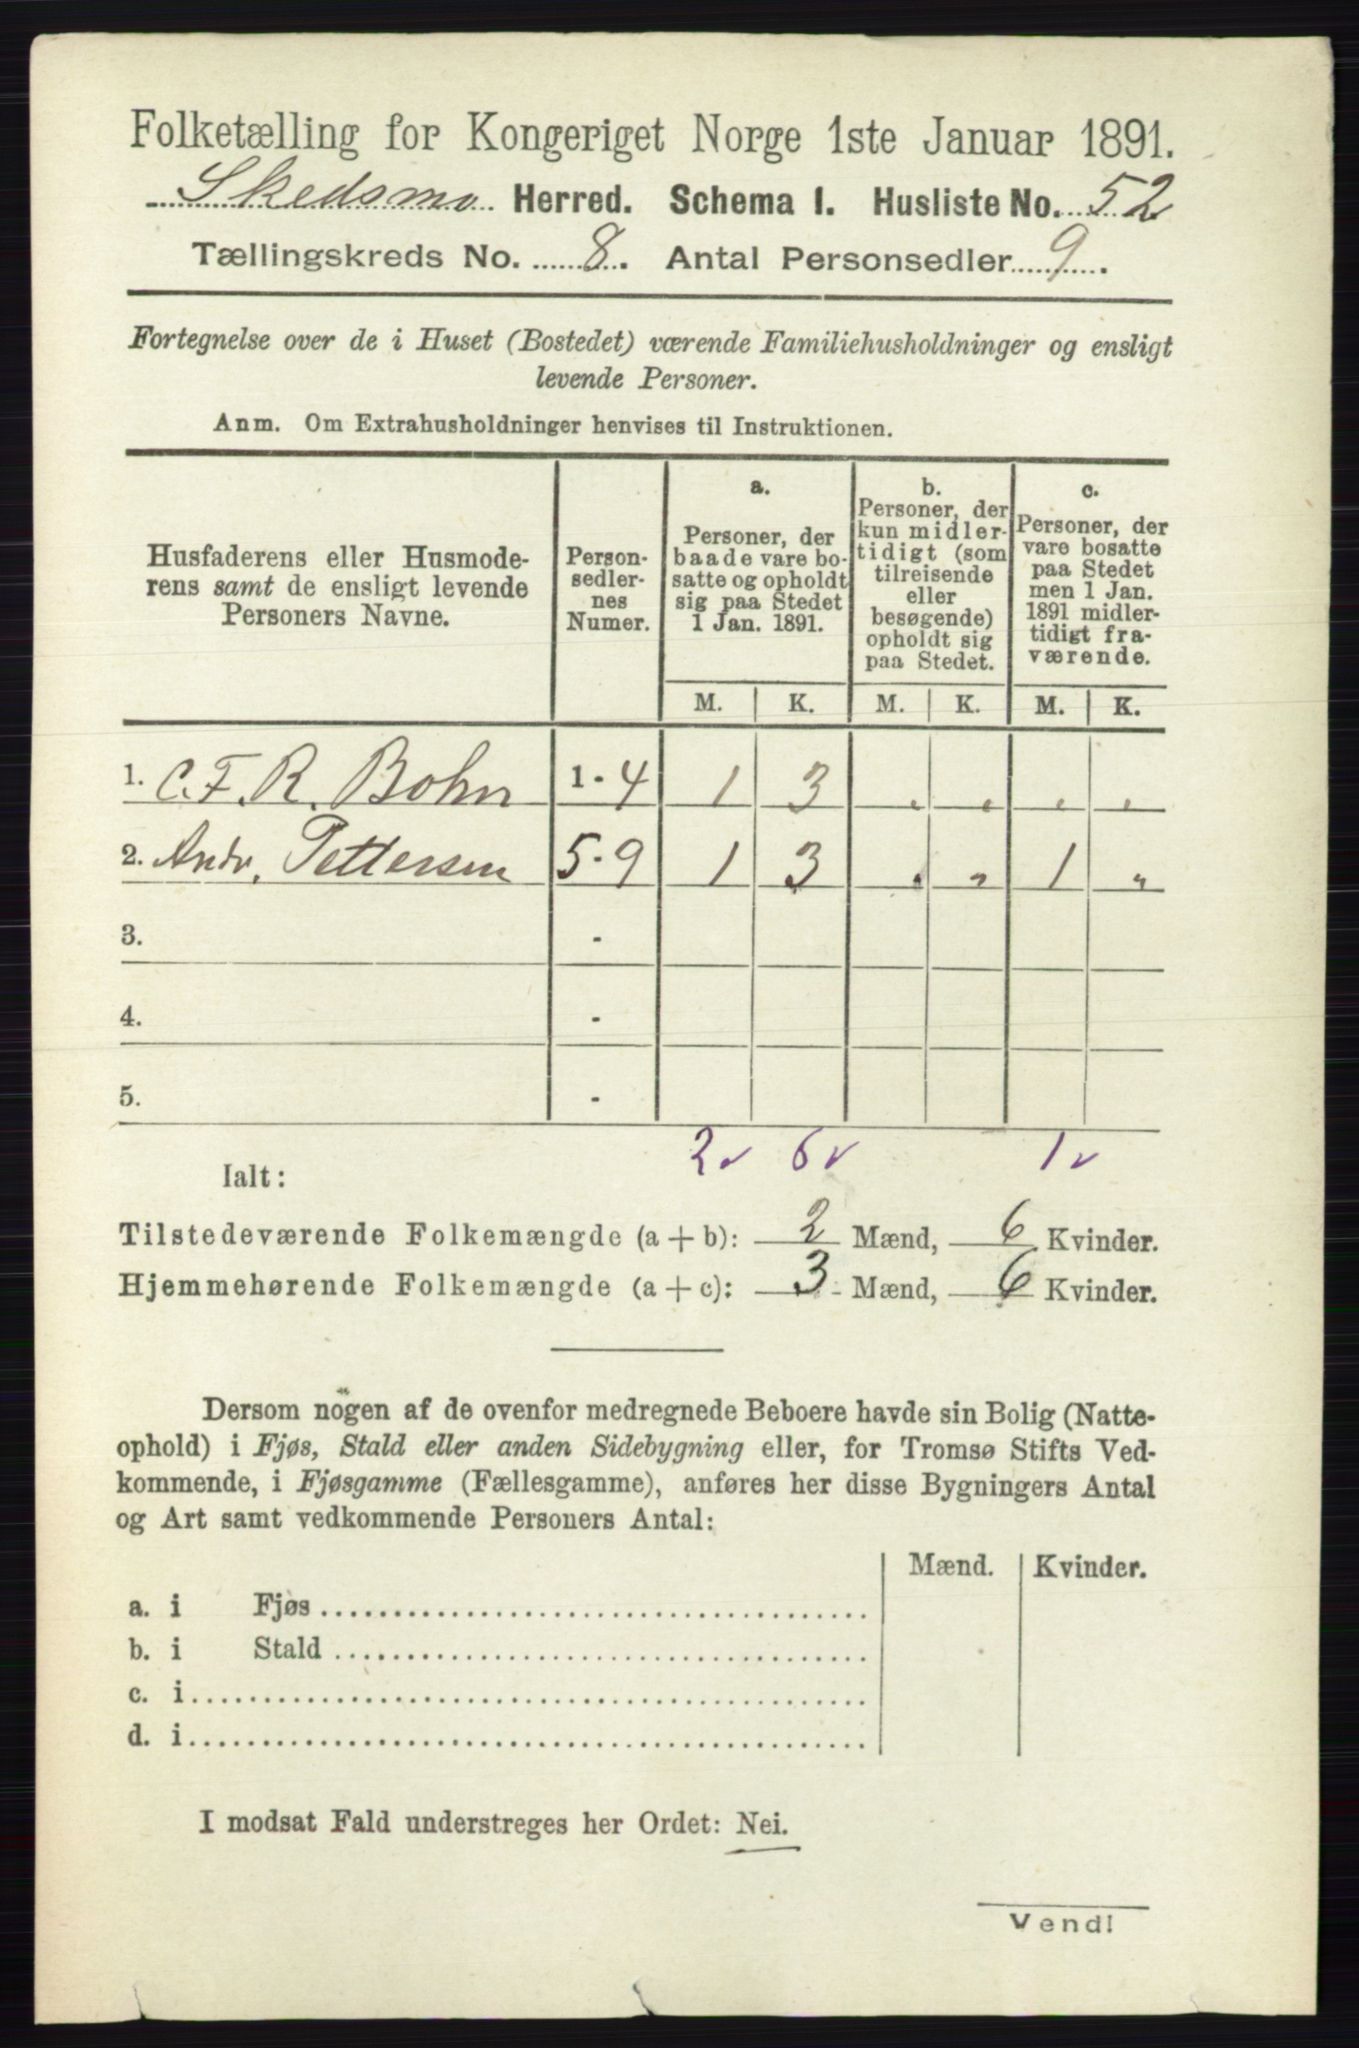 Folketælling for Kongeriget Norge 1ste Januar 1891.
Skedsmo Herred. Schema I. Husliste No. 52
Tællingskreds No. 8. Antal Personsedler 9.
Fortegnelse over de i Huset (Bostedet) værende Familiehusholdninger og ensligt
levende Personer.
Anm. Om Extrahusholdninger henvises til Instruktionen.
Husfaderens eller Husmode-
rens samt de ensligt levende
Personers Navne.
Person-
sedler-
nes
Numer.
a.
Personer, der
baade vare bo-
satte og opholdt
sig paa Stedet
1 Jan. 1891.
b.
Personer, der
kun midler-
tidigt (som
tilreisende
eller
besøgende)
opholdt sig
paa Stedet.
c.
Personer, der
vare bosatte
paa Stedet
men 1 Jan.
1891 midler-
tidigt fra-
værende.
M. K. M. K. M. K.
1. C. F. R. Bohn 1 - 4 1 3 „ „ „ „
2. Andr. Pettersen 5 - 9 1 3 „ „ 1 „
3. -
4. -
5. -
2 v 6 v 1 v
Ialt:
Tilstedeværende Folkemængde (a + b): 2 Mænd, 6 Kvinder.
Hjemmehørende Folkemængde (a + c): 3 Mænd, 6 Kvinder.
Dersom nogen af de ovenfor medregnede Beboere havde sin Bolig (Natte-
ophold) i Fjøs, Stald eller anden Sidebygning eller, for Tromsø Stifts Ved-
kommende, i Fjøsgamme (Fællesgamme), anføres her disse Bygningers Antal
og Art samt vedkommende Personers Antal:
Mænd. Kvinder.
a. i Fjøs
b. i Stald
c. i
d. i
I modsat Fald understreges her Ordet: Nei.
Vend!